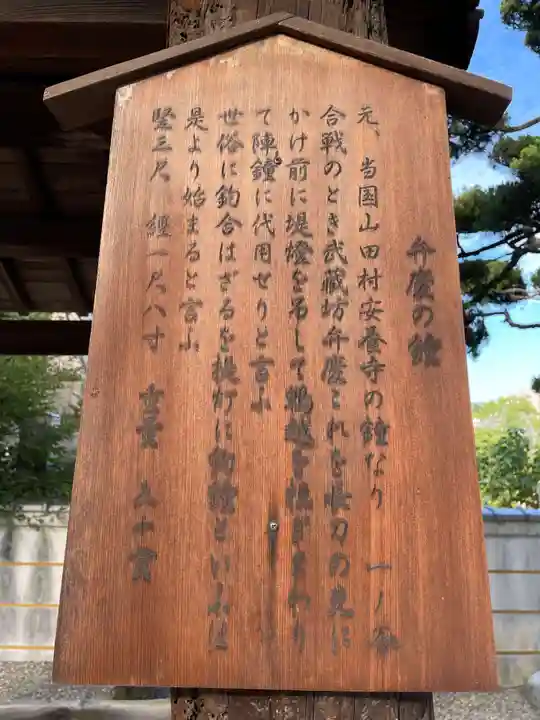 弁慶の鐘
元、当国山田村安養寺の鐘なり 一ノ谷
合戦のとき武蔵坊弁慶これを長刀の先に
かけ前に提燈を吊して鵯越を担ぎまわり
て陣鐘に代用せりと言ふ
世俗に釣合はざるを提灯に釣鐘といふは
是より始まると言ふ
竪三尺 経一尺八寸 重量 五十貫